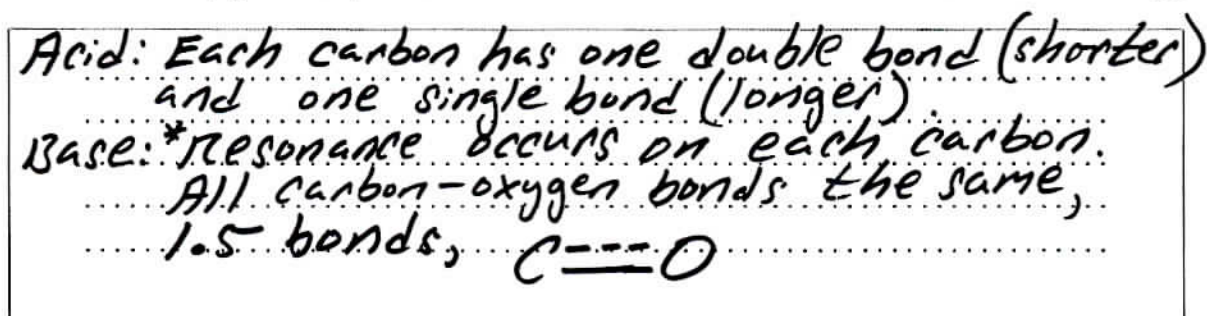 Acid: Each carbon has one double bond (shorter)
and one single bond (longer).
Base: *Resonance occurs on each carbon.
All carbon-oxygen bonds the same,
1.5 bonds, C=O